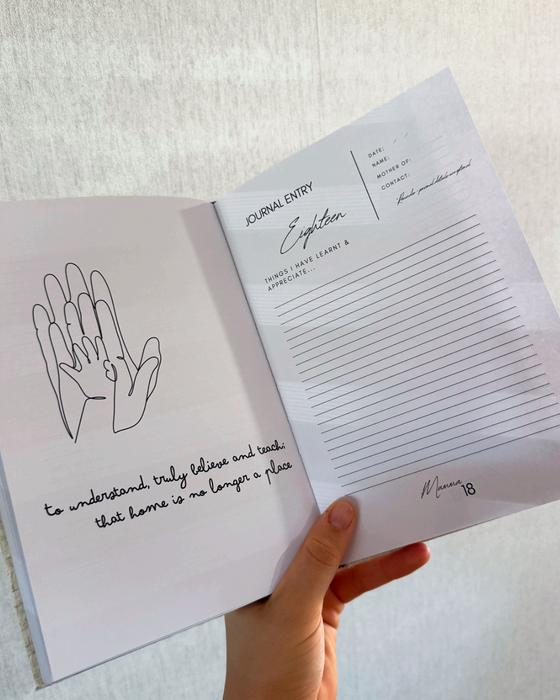 to understand, truly believe and teach:
that home is no longer a place
JOURNAL ENTRY
Eighteen
DATE:
NAME:
MOTHER OF:
CONTACT:
THINGS I HAVE LEARNT &
APPRECIATE...
18